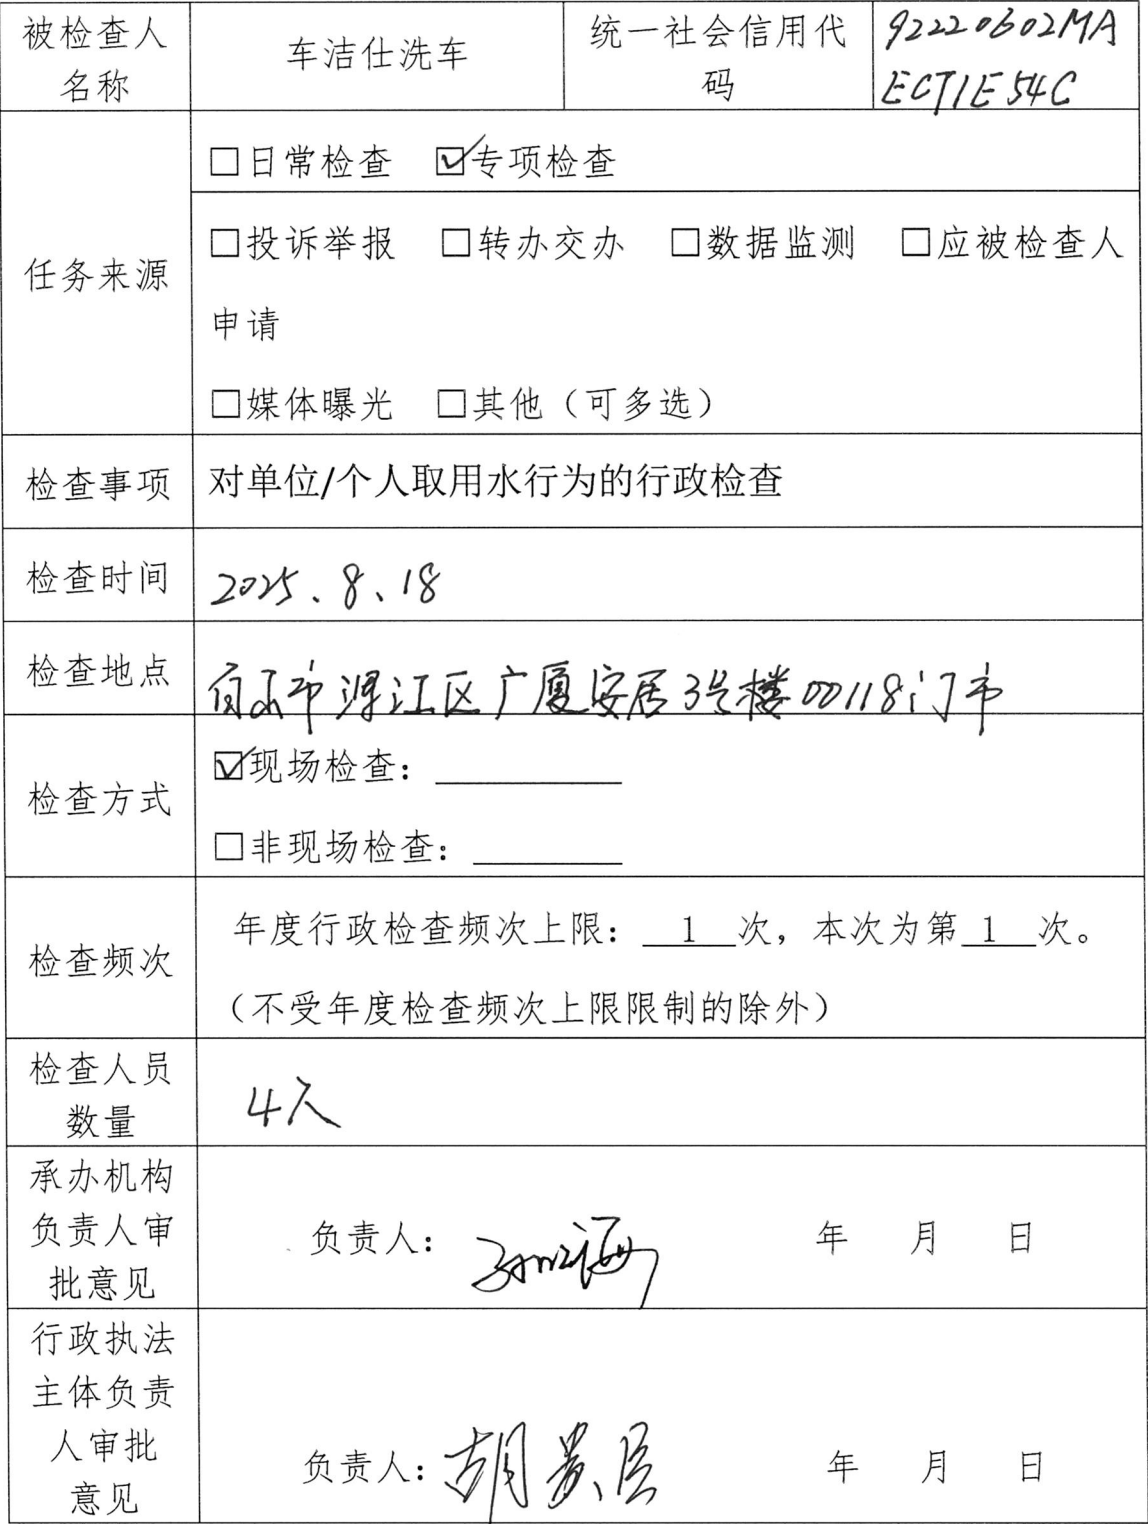 被检查人名称 车洁仕洗车 统一社会信用代码 92220602MAECT1E54C
任务来源 □日常检查 ☑专项检查
□投诉举报 □转办交办 □数据监测 □应被检查人
申请
□媒体曝光 □其他（可多选）
检查事项 对单位/个人取用水行为的行政检查
检查时间 2025、8、18
检查地点 白山市浑江区广厦安居3号楼00118门市
检查方式 ☑现场检查：
□非现场检查：
检查频次 年度行政检查频次上限：1次，本次为第1次。
（不受年度检查频次上限限制的除外）
检查人员数量 4人
承办机构负责人审批意见 负责人： 年 月 日
行政执法主体负责人审批意见 负责人：胡 年 月 日